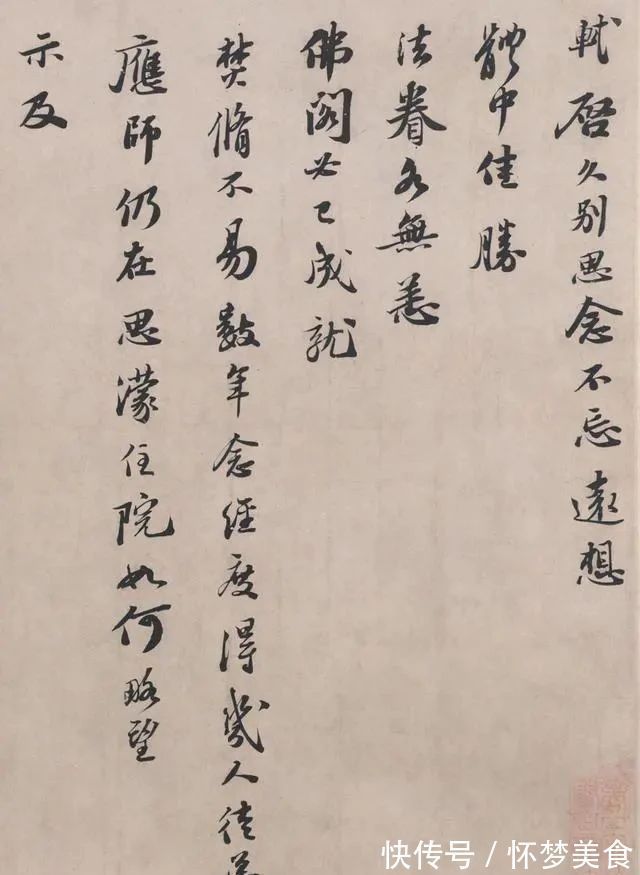 軾啓久别思念不忘遠想
體中佳勝
法眷各無恙
佛閣必已成就
焚脩不易數年念經度得幾人徒
應師仍在思濛住院如何略望
示及
快传号 / 怀梦美食